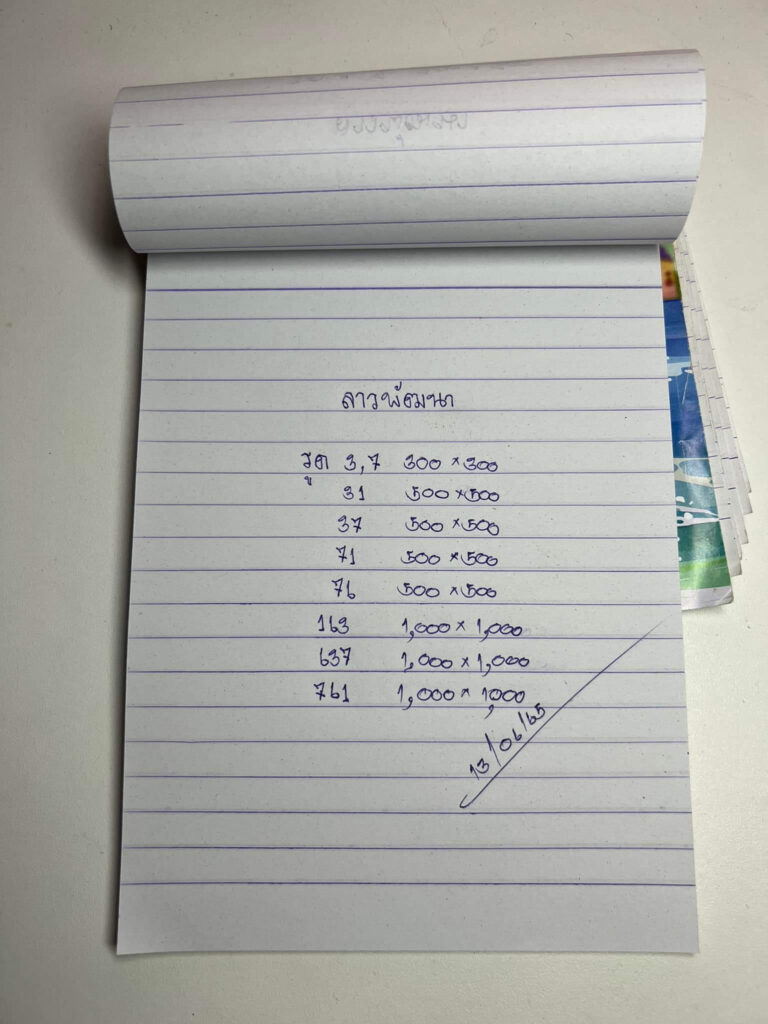 ลาวพัฒนา
รูด 3,7 300 × 300
31 500 × 500
37 500 × 500
71 500 × 500
76 500 × 500
163 1,000 × 1,000
637 1,000 × 1,000
761 1,000 × 1,000
13/06/65